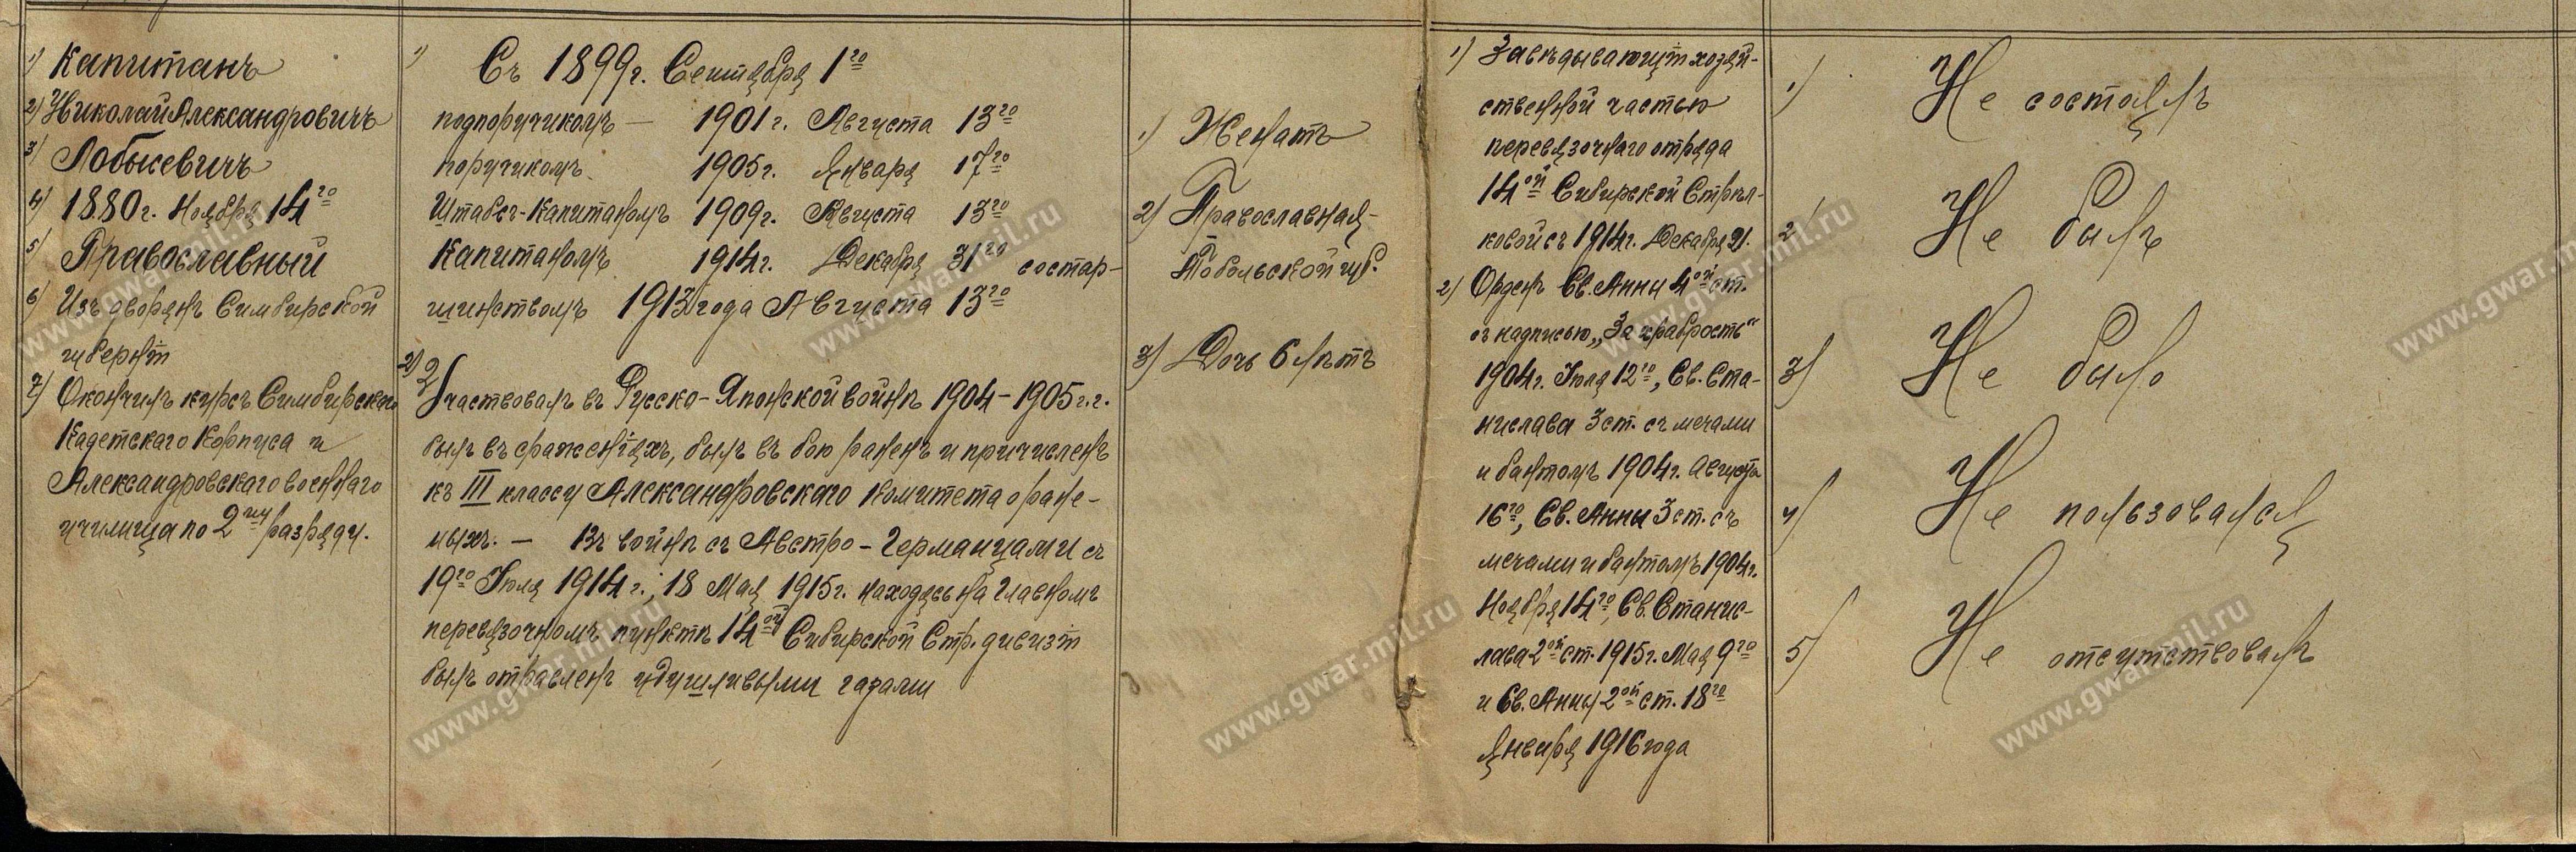 1) Капитанъ
2) Николай Александровичъ
3) Лобысевичъ
4) 1880 г. Ноября 14го
5) Православный
6) Изъ дворянъ Симбирской
губернiи
7) Окончилъ курсъ Симбирскаго
Кадетскаго Корпуса и
Александровскаго военнаго
училища по 2му разряду.
1) Съ 1899 г. Сентября 1го
подпоручикомъ — 1901 г. Августа 13го
поручикомъ 1905 г. Января 17го
Штабсъ-Капитаномъ 1909 г. Августа 13го
Капитаномъ 1914 г. Декабря 31го состар-
шинствомъ 1913 года Августа 13го
2) Участвовалъ въ Русско-Японской войнѣ 1904-1905 г.г.
былъ въ сраженiяхъ, былъ въ бою раненъ и причисленъ
къ III классу Александровскаго комитета о ране-
ныхъ. — Въ войнѣ съ Австро-Германцами съ
19го Iюля 1914 г.; 18 Мая 1915 г. находясь на Главномъ
перевязочномъ пунктѣ 14ой Сибирской Стр. дивизiи
былъ отравленъ удушливыми газами
1) Женатъ
2) Православная-
Тобольской губ.
3) Дочь 6 лѣтъ
1) Завѣдывающiй хозяй-
ственной частью
перевязочнаго отряда
14ой Сибирской Стрѣл-
ковой съ 1914 г. Декабря 21.
2) Орденъ Св. Анны 4ой ст.
съ надписью „За храбрость"
1904 г. Iюля 12го, Св. Ста-
нислава 3 ст. съ мечами
и бантомъ 1904 г. Августа
16го, Св. Анны 3 ст. съ
мечами и бантомъ 1904 г.
Ноября 14го, Св. Станис-
лава 2ой ст. 1915 г. Мая 9го
и Св. Анны 2ой ст. 18го
Января 1916 года
1) Не состоялъ
2) Не былъ
3) Не было
4) Не пользовался
5) Не отсутствовалъ
www.gwar.mil.ru
www.gwar.mil.ru
www.gwar.mil.ru
www.gwar.mil.ru
www.gwar.mil.ru
www.gwar.mil.ru
www.gwar.mil.ru